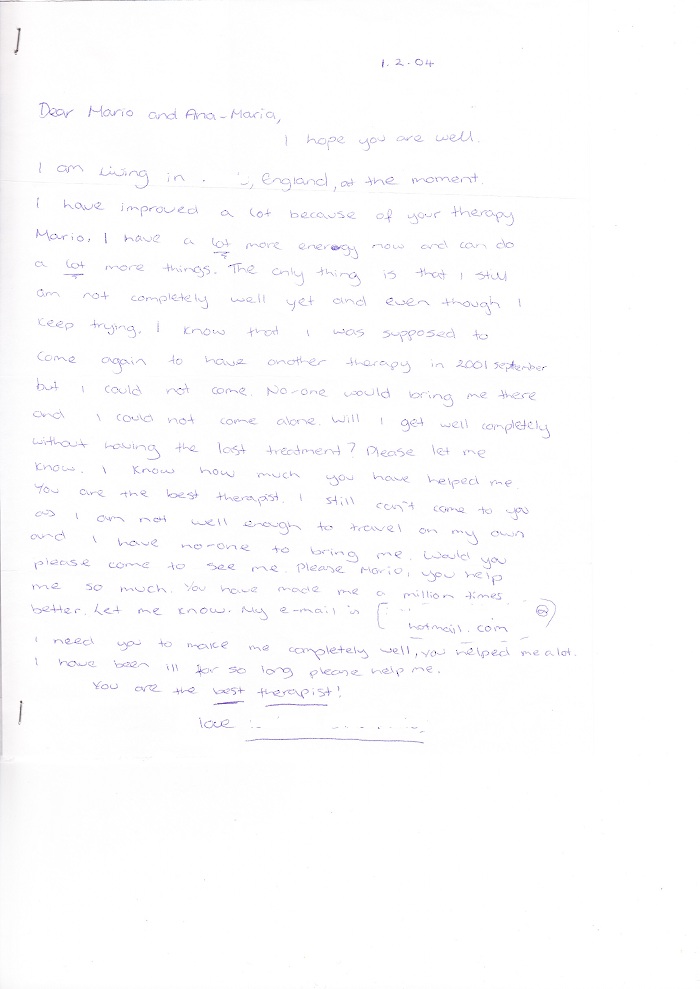 1.2.04
Dear Mario and Ana-Maria,
I hope you are well.
I am living in , England, at the moment.
I have improved a lot because of your therapy
Mario. I have a lot more energy now and can do
a lot more things. The only thing is that I still
am not completely well yet and even though I
keep trying. I know that I was supposed to
come again to have another therapy in 2001 september
but I could not come. No-one would bring me there
and I could not come alone. Will I get well completely
without having the last treatment? Please let me
know. I know how much you have helped me.
You are the best therapist. I still can't come to you
as I am not well enough to travel on my own
and I have no-one to bring me. Would you
please come to see me. Please Mario, you help
me so much. You have made me a million times
better. Let me know. My e-mail is (
hotmail.com
I need you to make me completely well, you helped me a lot.
I have been ill for so long please help me.
You are the best therapist!
love